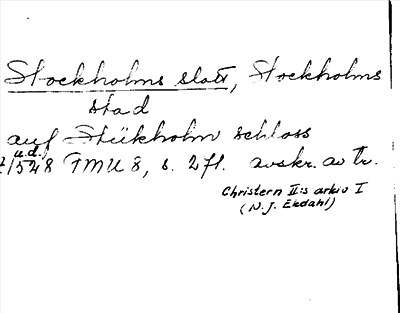 Stockholms slott, Stockholms
stad
auf Stükholm schloss
u.d.
1528 FMU 8, s. 2 fl. avskr. av tr.
Christern II:s arkiv I
(N. J. Ekdahl)